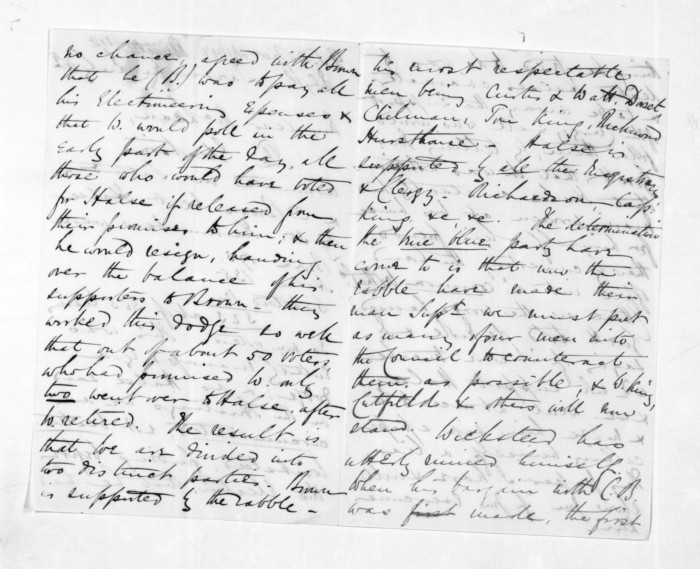 no chance, agreed with Brown
that he (B.) was to pay all
his Electioneering Expenses &
that W. would poll in the
Early part of the day, all
those who would have voted
for Halse if released from
their promises to him, & then
he would resign, handing
over the balance of his
supporters to Brown - they
worked this dodge so well
that out of about 50 votes,
who had promised W. only
two went over to Halse, after
W. retired. The result is
that we are divided into
two distinct parties. Brown
is supported by the rabble -
his most respectable
men being Curtis & Watt, Dorset
Chilman, Tom King, Richmond
Hursthouse - Halse is
supported by all the Magistracy
& Clergy - Richardson, Capt
King, &c, &c. The determination
the true blue party have
come to is that now the
rabble have made their
man Supt. we must put
as many of our men into
the Council to counteract
them, as possible, & W. King,
Cutfield & others will now
stand. Wicksteed has
utterly ruined himself.
When his bargain with C.B.
was first made, the first